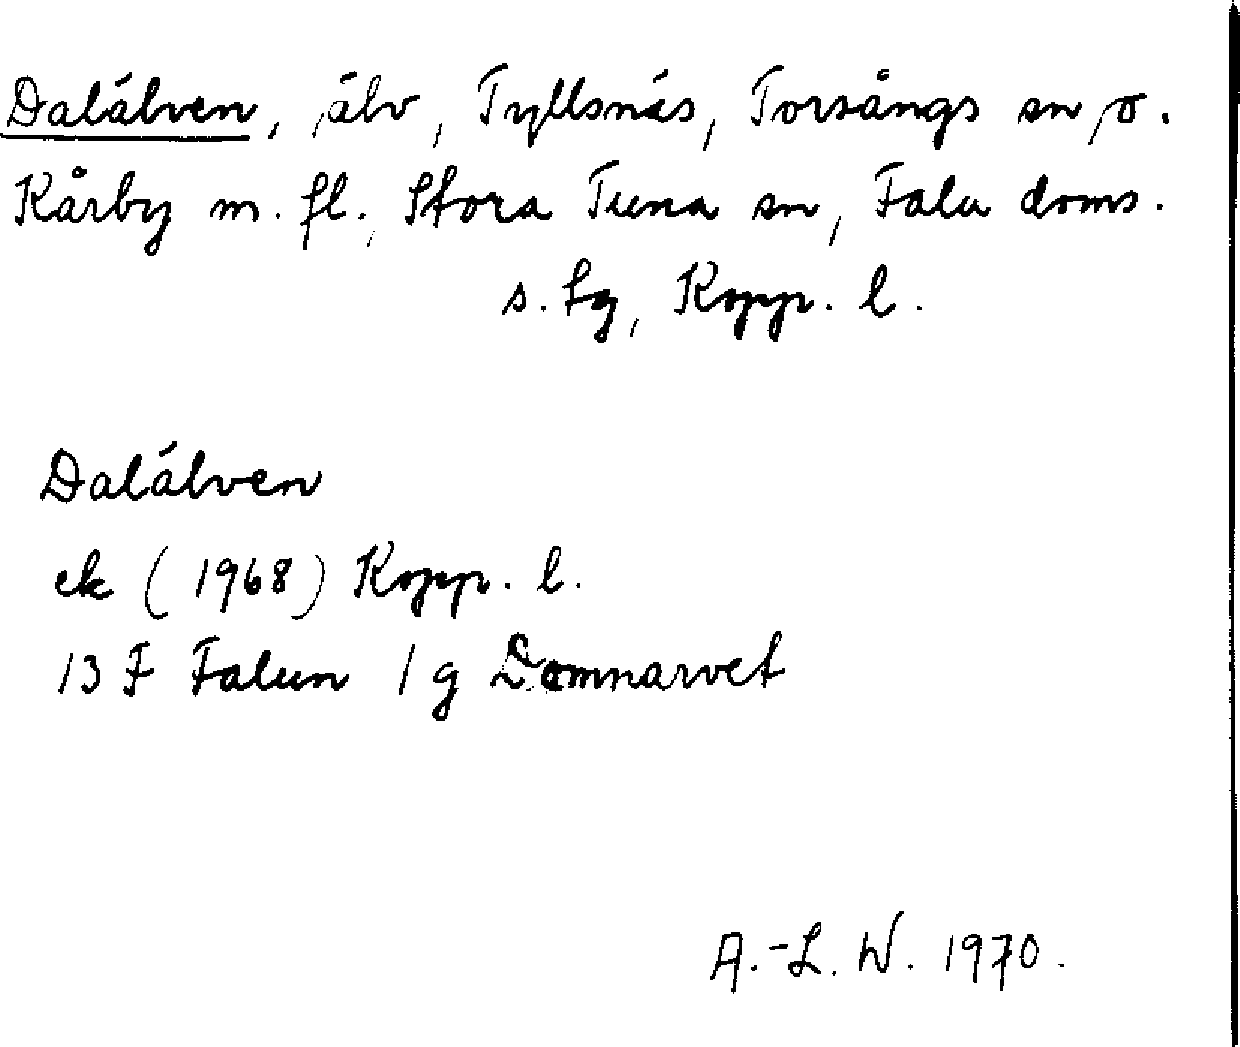 Dalälven, älv, Tyllsnäs, Torsångs sn, o.
Kårby m. fl., Stora Tuna sn, Falu doms.
s. tg, Kopp. l.
Dalälven
ek (1968) Kopp. l.
13 F Falun 1 g Domnarvet
A.-L. W. 1970.